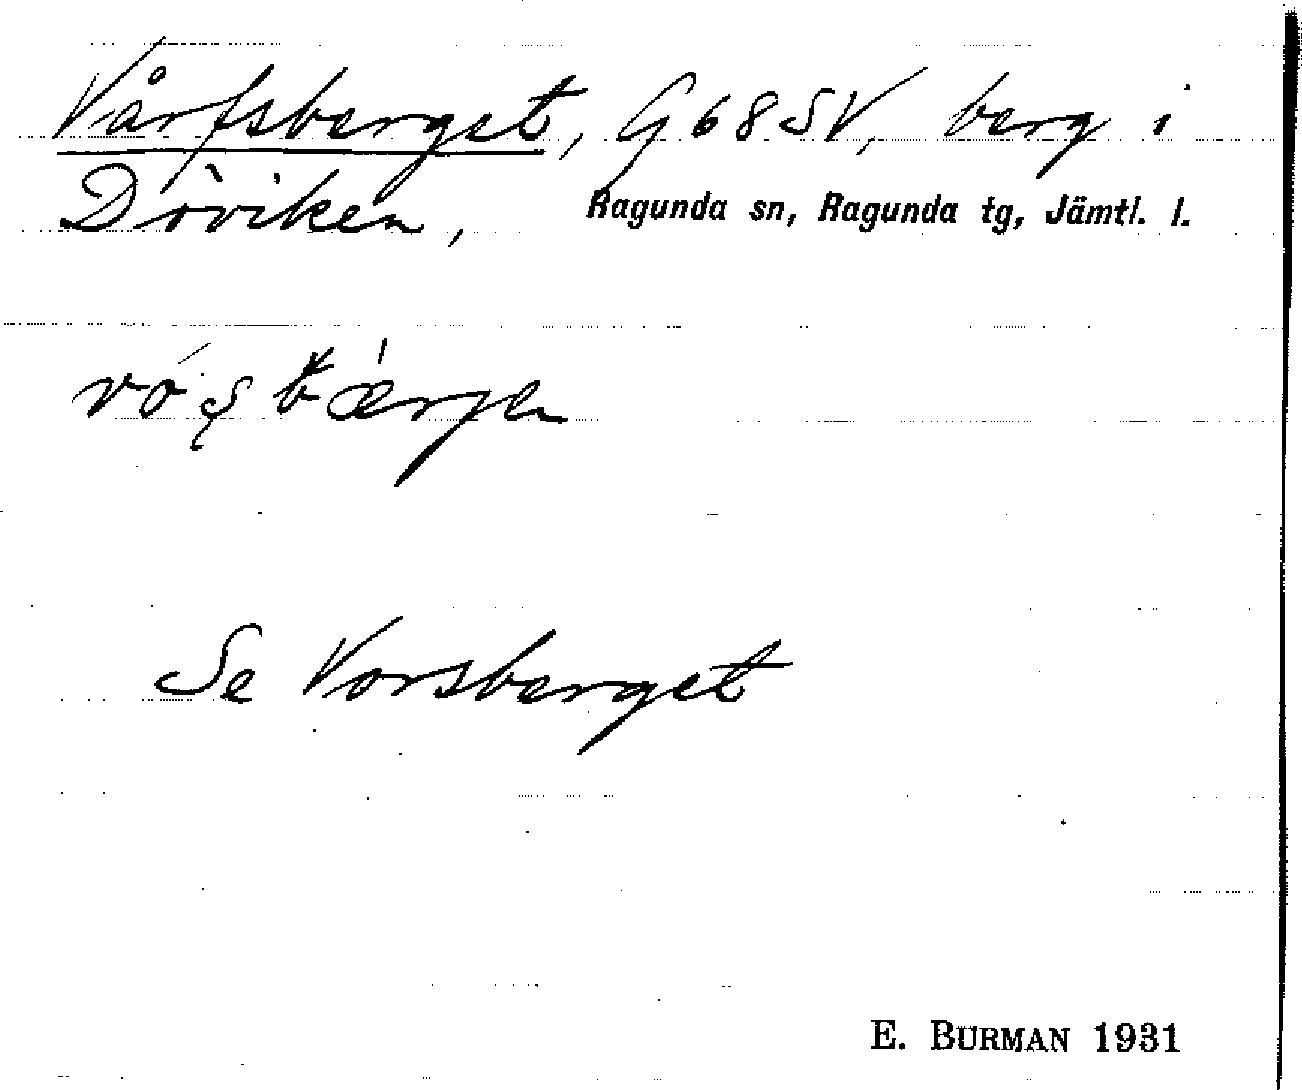 Vårfsberget, G68SV, berg i
Döviken, Ragunda sn, Ragunda tg, Jämtl. l.
Se Vorsberget
E. BURMAN 1931